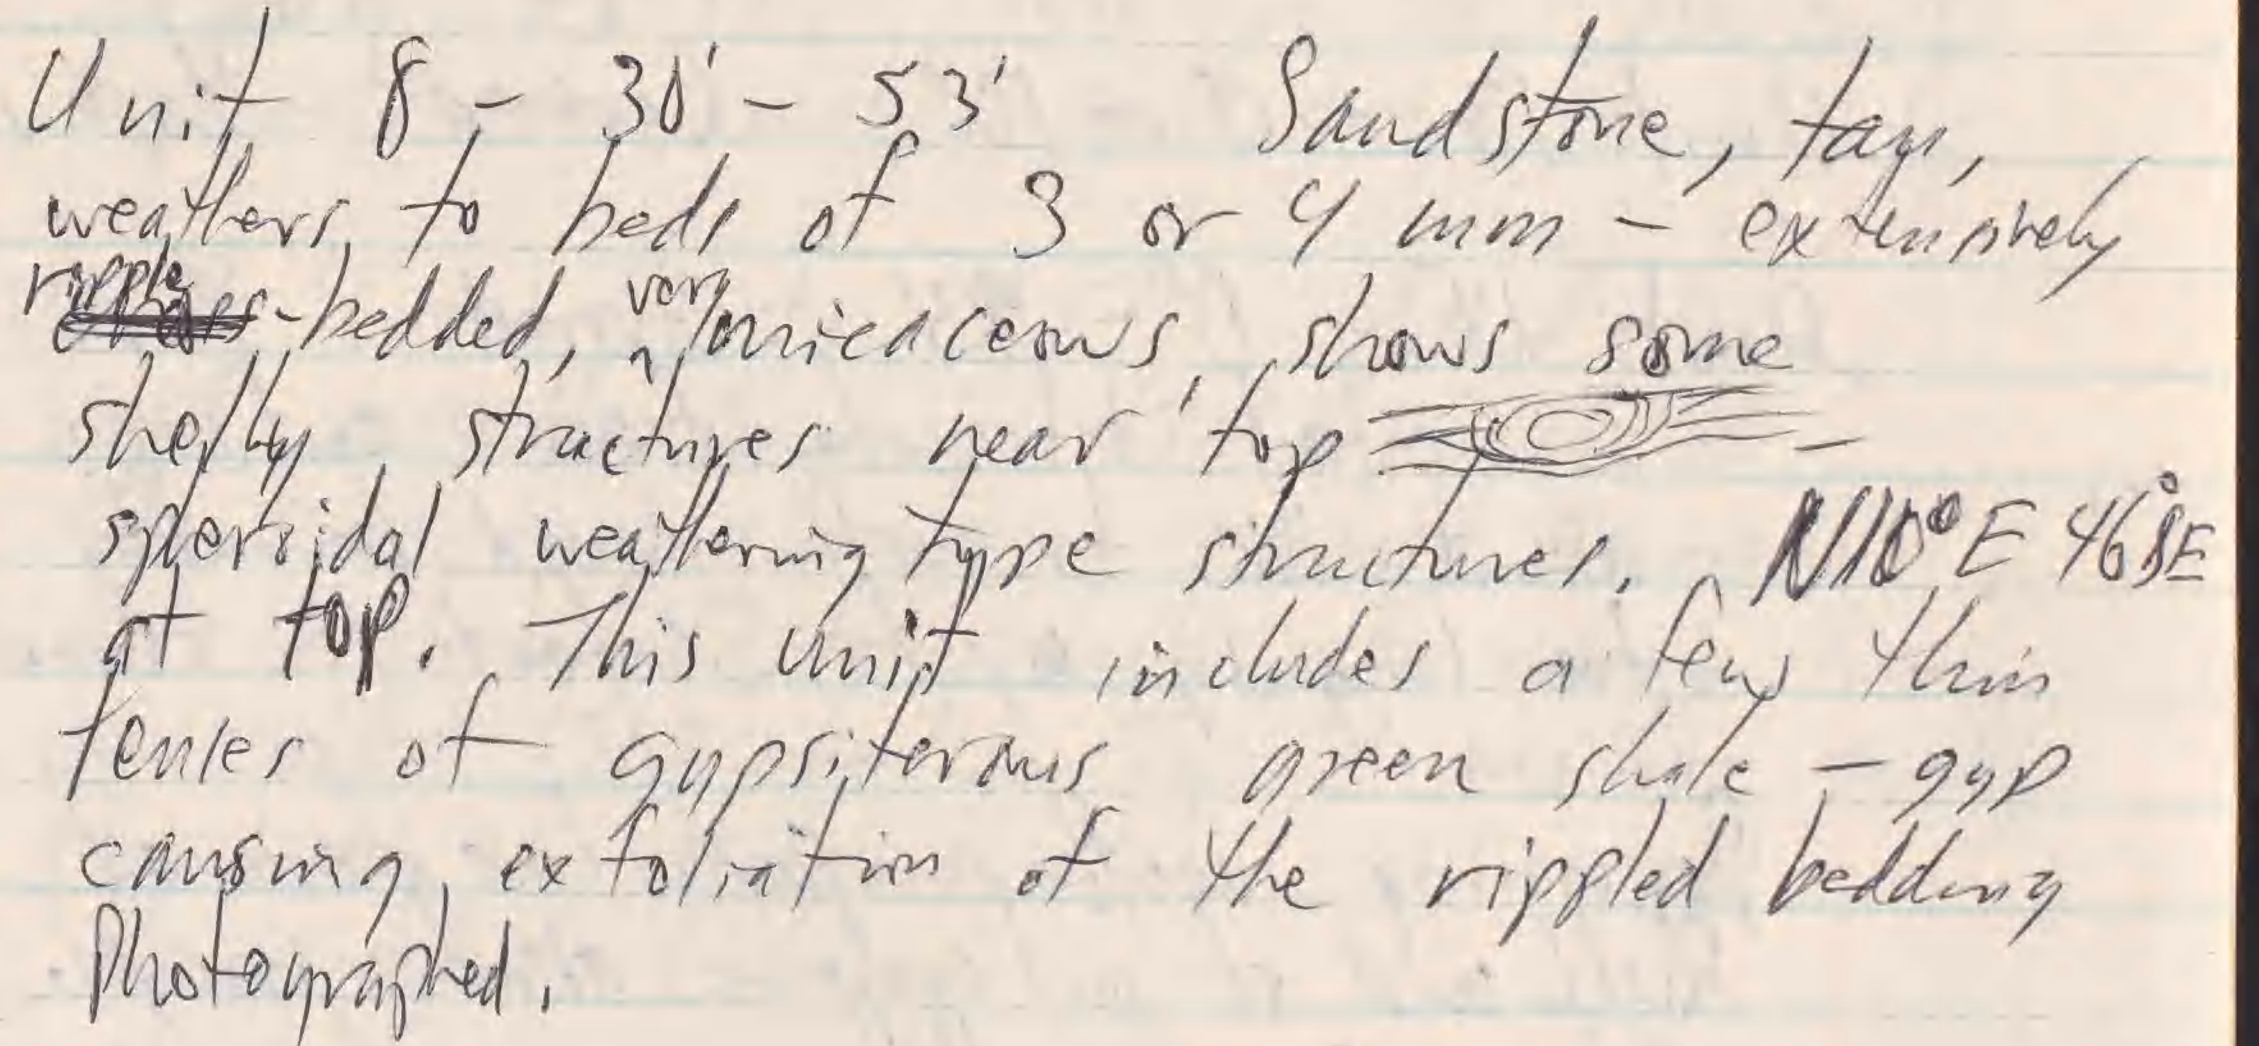 Unit 8 - 30' - 53' Sandstone, tan,
weathers to beds of 3 or 4 mm - extensively
ripple-bedded, very micaceous, shows some
shelly structures near top -
spheroidal weathering type structures. N10°E 46°SE
at top. This unit includes a few thin
lenses of gypsiferous green shale - gyp
causing exfoliation of the rippled bedding
Photographed.